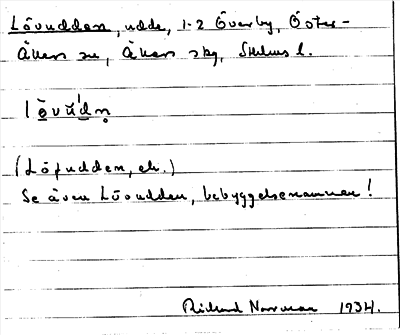 Lövudden, udde, 1-2 Överby, Öster-
Åkers sn, Åkers skg, Sthlms l.
lö̀vu̇́dṇ
(Löfudden, ek.)
Se även Lövudden, bebyggelsenamnen!
Rickard Norrman 1934.